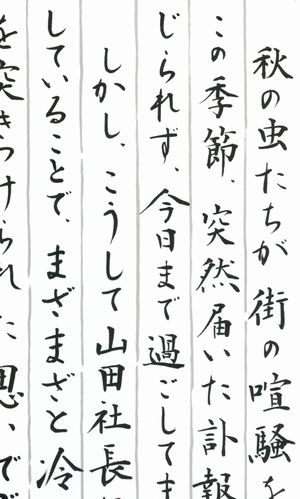 秋の虫たちが街の喧騒を
この季節、突然届いた訃報
じられず、今日まで過ごしてま
しかし、こうして山田社長
していることで、まざまざと冷
を突きつけられた思いで